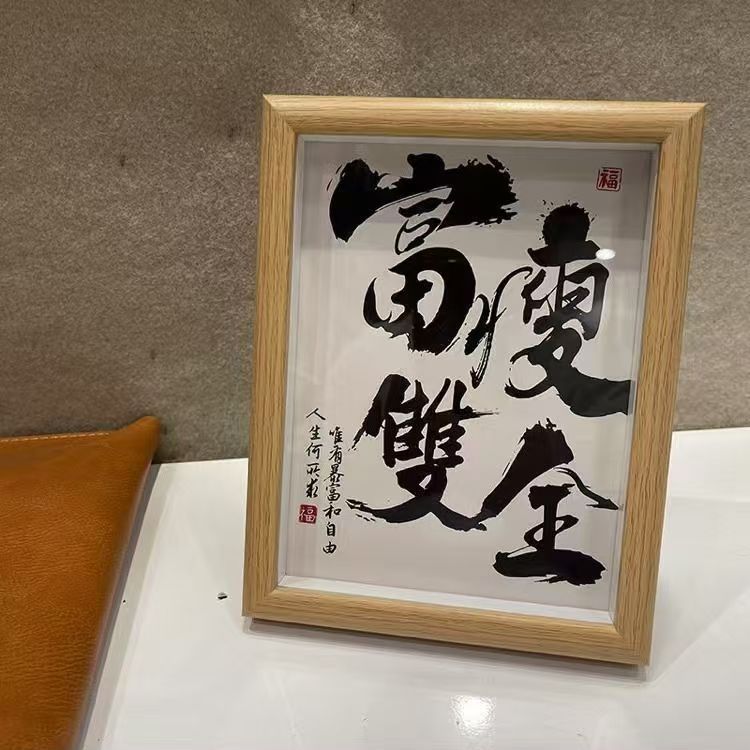 富瘦
雙全
人生何所求
唯有暴富和自由
福
福